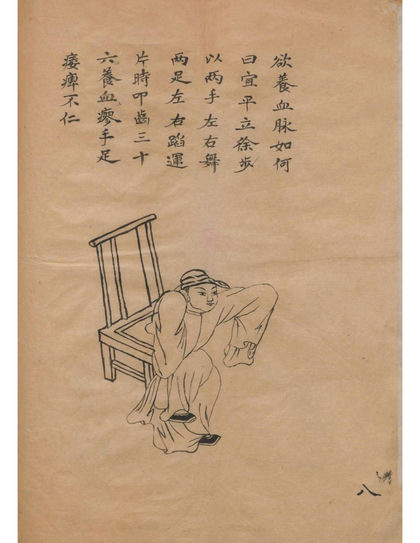 欲養血脉如何
曰宜平立徐步
以兩手左右舞
兩足左右蹈運
片時叩齒三十
六養血瘳手足
痿痺不仁
八